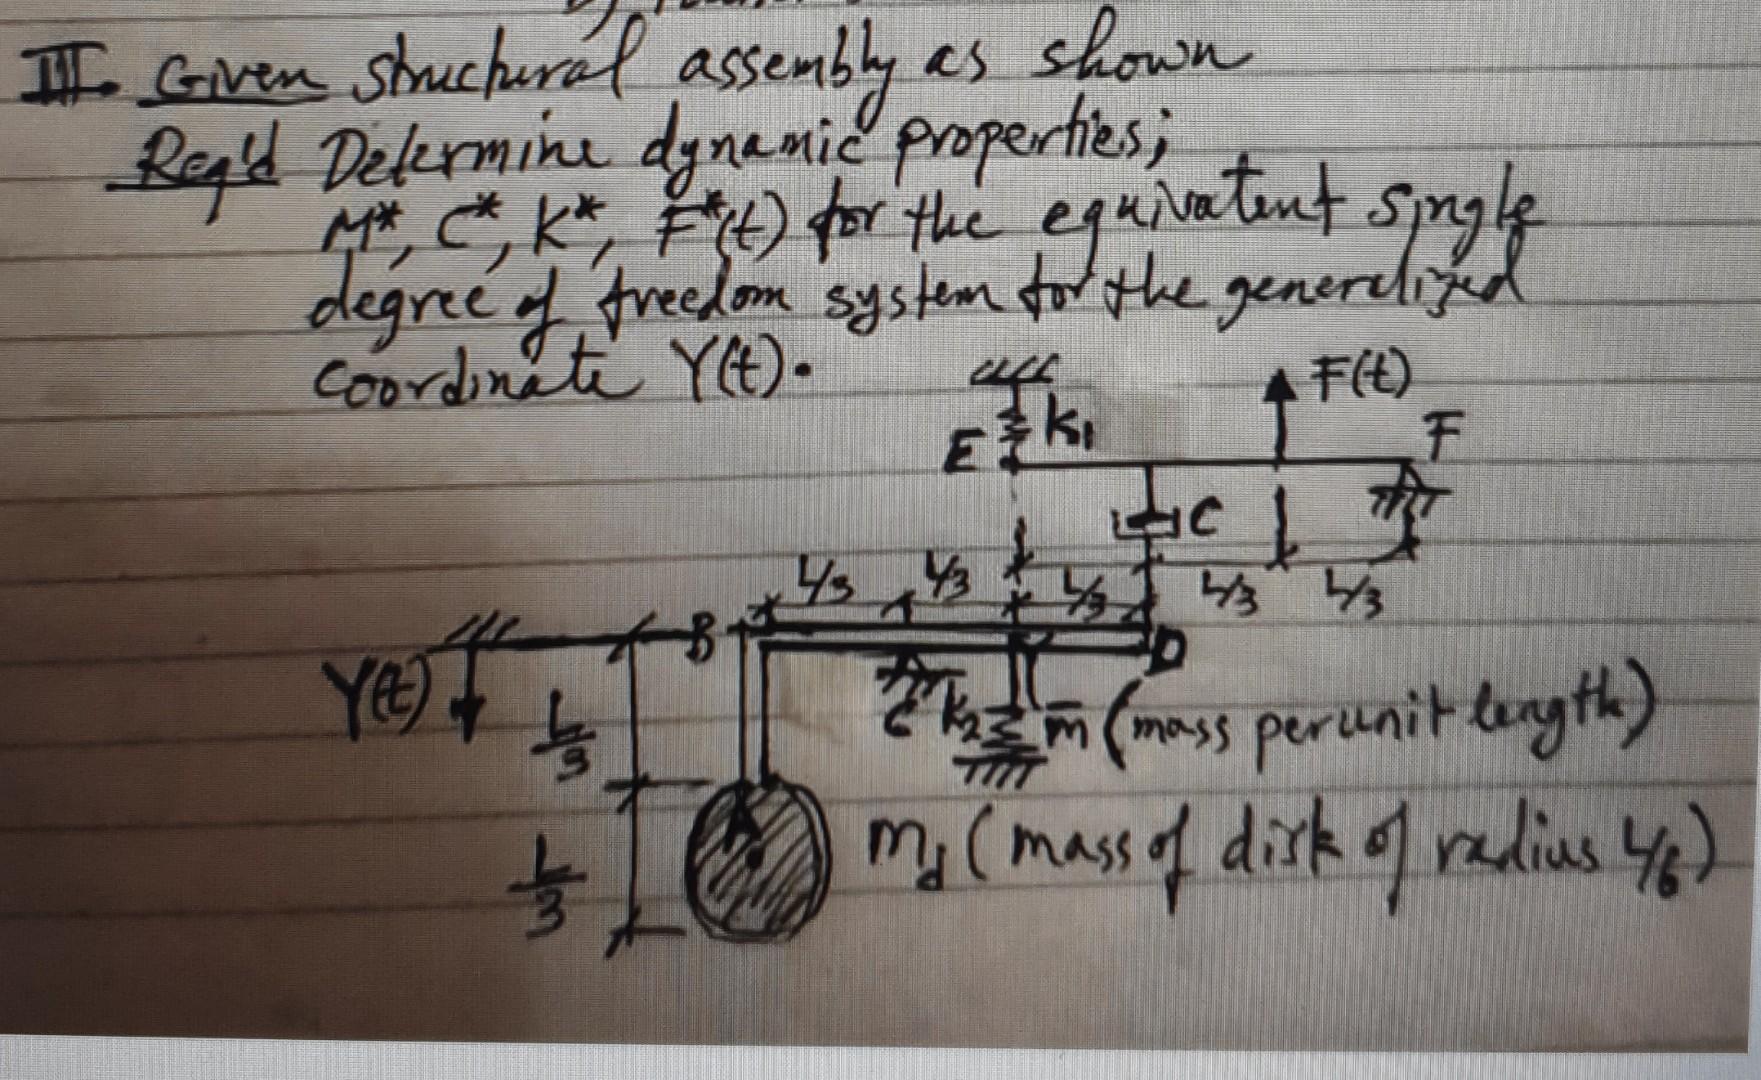 III. Given structural assembly as shown
Req'd Determine dynamic properties;
M*, C*, K*, F*(t) for the equivalent single
degree of freedom system for the generalized
coordinate Y(t).
F(t)
E K₁ F
C
L/3 L/3 L/3 L/3 L/3
B D
Y(t) L/3 C k₂ m̄ (mass per unit length)
A
L/3 m_d (mass of disk of radius L/6)